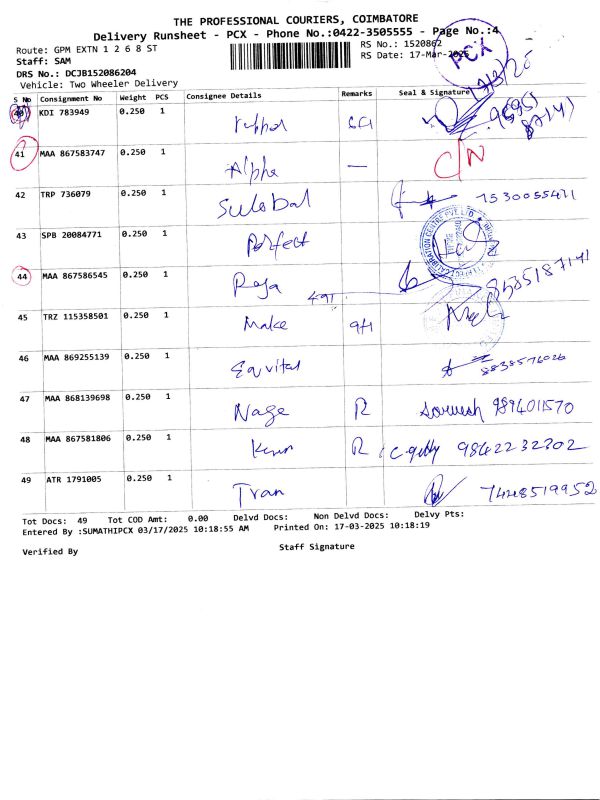 THE PROFESSIONAL COURIERS, COIMBATORE
Delivery Runsheet - PCX - Phone No.:0422-3505555 - Page No.:4
Route: GPM EXTN 1 2 6 8 ST
RS No.: 1520862
Staff: SAM
RS Date: 17-Mar-2025
PCX
DRS No.: DCJB152086204
Vehicle: Two Wheeler Delivery
S No Consignment No Weight PCS Consignee Details Remarks Seal & Signature
40 KDI 783949 0.250 1
41 MAA 867583747 0.250 1 Alpha — C/N
42 TRP 736079 0.250 1 7530055471
43 SPB 20084771 0.250 1 Perfect
44 MAA 867586545 0.250 1 Raja
45 TRZ 115358501 0.250 1 Make
46 MAA 869255139 0.250 1 Equitas 8838576026
47 MAA 868139698 0.250 1 Nage R 9894011570
48 MAA 867581806 0.250 1 R 9842232302
49 ATR 1791005 0.250 1 Tran 7448519952
Tot Docs: 49 Tot COD Amt: 0.00 Delvd Docs: Non Delvd Docs: Delvy Pts:
Entered By :SUMATHIPCX 03/17/2025 10:18:55 AM Printed On: 17-03-2025 10:18:19
Verified By Staff Signature